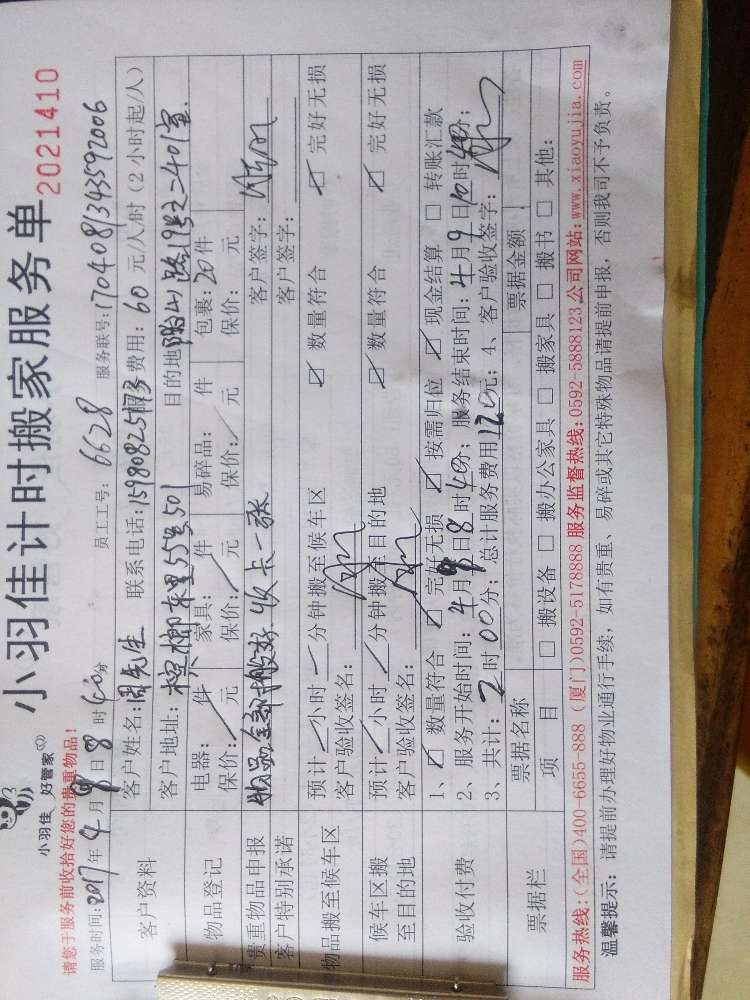 小羽佳 好管家
小羽佳计时搬家服务单
2021410
请您于服务前收拾好您的贵重物品!
服务时间:2017年4月9日8时40分 员工工号: 6628 服务联号:1704081343592006
客户资料
客户姓名:周先生 联系电话:15980825173 费用: 60 元/人/时 (2 小时起/人)
客户地址: 槟榔东里55号501 目的地
物品登记
电器: 件 家具: 件 易碎品: 件 包裹: 20件
保价: 元 保价: 元 保价: 元 保价: 元
贵重物品申报 物品全部搬好.收卡一张 客户签字:
客户特别承诺 客户签字:
物品搬至候车区
预计 小时 分钟搬至候车区 ☑ 数量符合 ☑ 完好无损
客户验收签名:
候车区搬至目的地
预计 小时 分钟搬至目的地 ☑ 数量符合 ☑ 完好无损
客户验收签名:
验收付费
1、☑ 数量符合 ☑ 完好无损 ☑ 按需归位 ☑ 现金结算 □ 转账汇款
2、服务开始时间: 4月9日8时40分; 服务结束时间: 4月9日10时40分;
3、共计: 2时00分; 总计服务费用120元; 4、客户验收签字:
票据栏
票据名称 票据金额
项 目 □ 搬设备 □ 搬办公家具 □ 搬家具 □ 搬书 □ 其他:
服务热线:(全国)400-6655-888 (厦门)0592-5178888 服务监督热线:0592-5888123 公司网站: www.xiaoyujia.com
温馨提示: 请提前办理好物业通行手续, 如有贵重、易碎或其它特殊物品请提前申报, 否则我司不予负责。